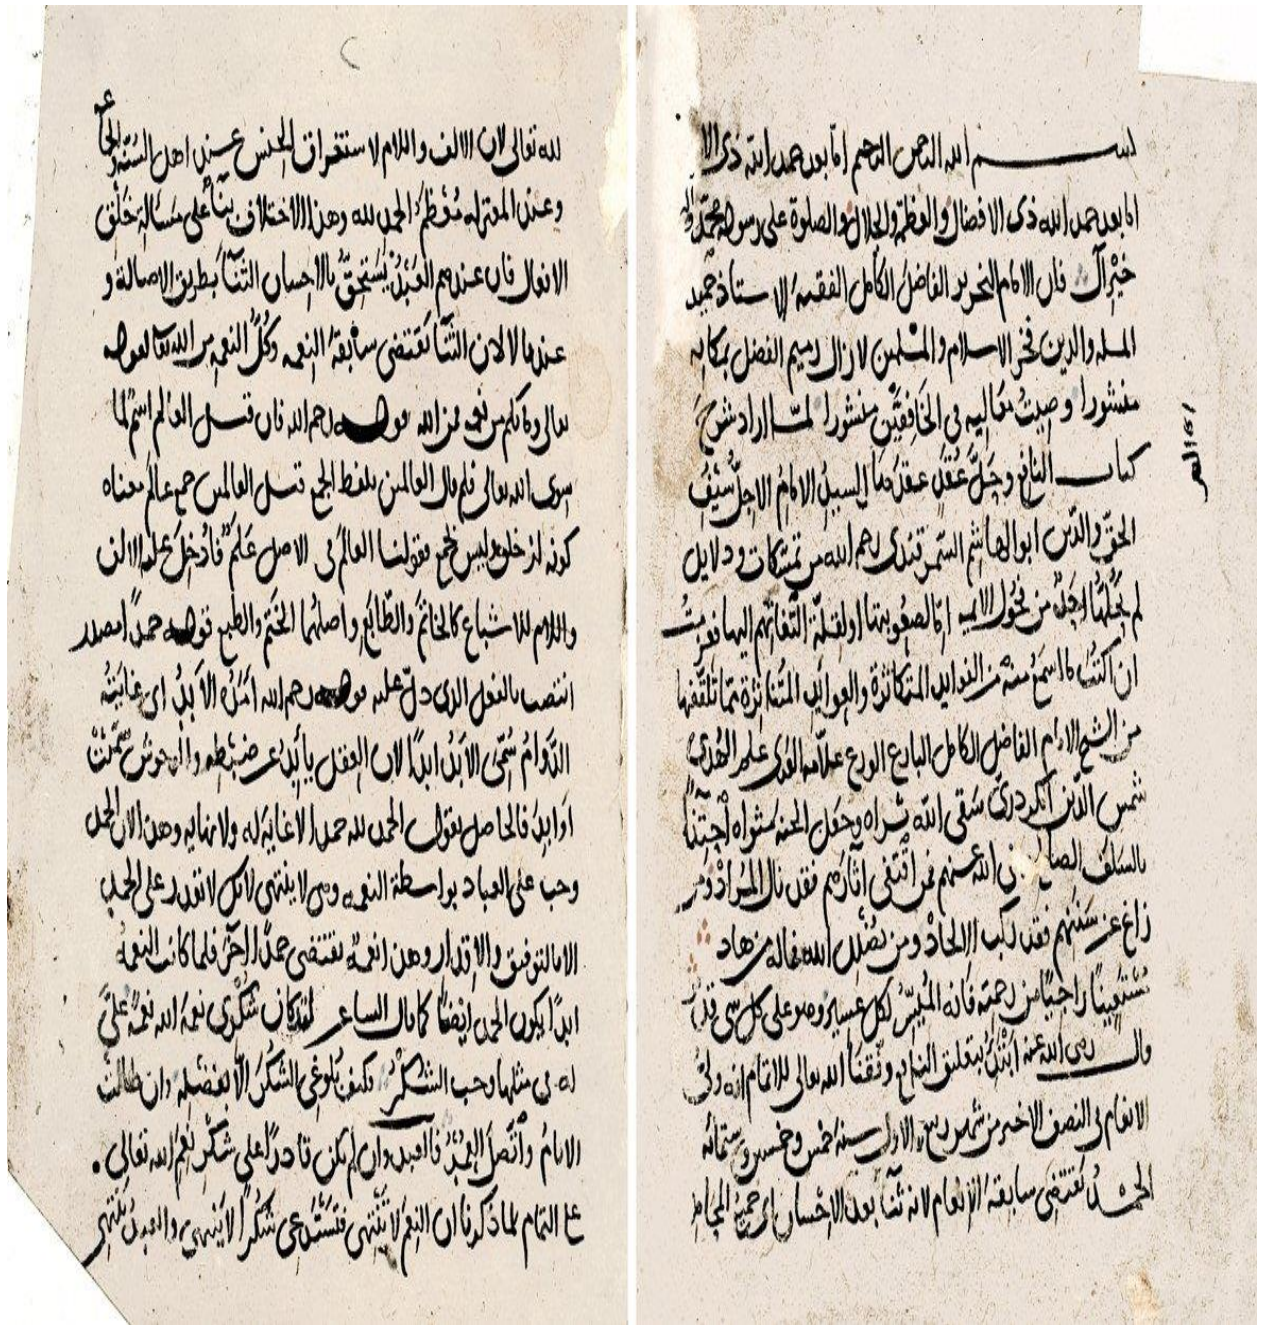 بسم الله الرحمن الرحيم اما بعد حمد الله ذى الا
اما بعد حمد الله ذى الافضال والعظمة والجلال والصلوة على رسوله محمد
خير آل قال الامام النحرير الفاضل الكامل الفقيه الاستاذ حميد
الملة والدين فخر الاسلام والمسلمين لا زال رميم الفضل بمكانه
منشورا وصيت معاليه فى الخافقين منشورا لما اراد شرح
كتاب النافع وحل عقل عقد منا السيد الامام الاجل سيف
الحق والدين ابو الهاشم السمرقندى رحمه الله من تمسكات ودلايل
لم يحللها احد من فحول الايمة اما لصعوبتها او لقلة التفاتهم اليها فعزمت
ان اكتب ما اسمع منه من الفوايد المتكاثرة والعوايد المتناثرة مما تلقفها
من الشيخ الامام الفاضل الكامل البارع الورع علامة الورى علم الهدى
شمس الدين الكردرى سقى الله ثراه وجعل الجنة مثواه
بالسلف الصالح رضى الله عنهم فمن اقتفى آثارهم فقد نال المراد ومن
زاغ عن سننهم فقد ركب الالحاد ومن يضلل الله فما له من هاد
مستعينا راجيا من رحمته فانه الميسر لكل عسير وهو على كل شى قدير
قال رضى الله عنه ابتدئ بتعليق النافع وفقنا الله تعالى للاتمام انه ولى
الانعام فى النصف الاخير من شهر ربيع الاول سنة خمس وخمسين وستمائة
الحمد يقتضى سابقة الانعام لانه ثنا بعد الاحسان اى جميع المحامد
لله تعالى لان الالف واللام لاستغراق الجنس عند اهل السنة والجماعة
وعند المعتزلة معظم الحمد لله وهذا الاختلاف بنآ على مسالة خلق
الافعال فان عندهم العبد يستحق بالاحسان الثنآ بطريق الاصالة و
عندنا لا لان الثنآ يقتضى سابقة النعمة وكل النعمة من الله تعالى لقوله
تعالى وما بكم من نعمة فمن الله قوله رحمه الله فان قيل العالم اسم لما
سوى الله تعالى فلم قال العالمين بلفظ الجمع قيل العالمين جمع عالم معناه
كونه وليس بجمع فقولنا العالم فى الاصل علم فادخل عليه الالف
واللام للاشباع كالخاتم والطابع واصلهما الختم والطبع قوله حمدا مصدر
انتصب بالفعل الذى دل عليه قوله رحمه الله امده الابد اى غايته
الدوام سمى الابد ابدا لان العقل يأبد عن ضبطه والوحوش سميت
اوابد فالحاصل يقول الحمد لله حمدا لا غاية له ولا نهاية وهذا لان الحمد
وجب على العباد بواسطة النعمة وهى لا ينتهى لانك لا تقدر على الحمد
الا بالتوفيق والاقدار وهذا نعمة يقتضى حمدا آخر فلما كانت النعمة
ابدا يكون الحمد ايضا كما قال الشاعر لئن كان شكرى نعمة الله نعمة على
له فى مثلها وجب الشكر فكيف بلوغى الشكر الا بفضله وان طالت
الايام واتصل العمر فالعبد وان لم يكن قادرا على شكر نعم الله تعالى
على التمام لما ذكرنا ان النعم لا تنتهى فتستدعى شكرا لا ينتهى والعبد ينتهى